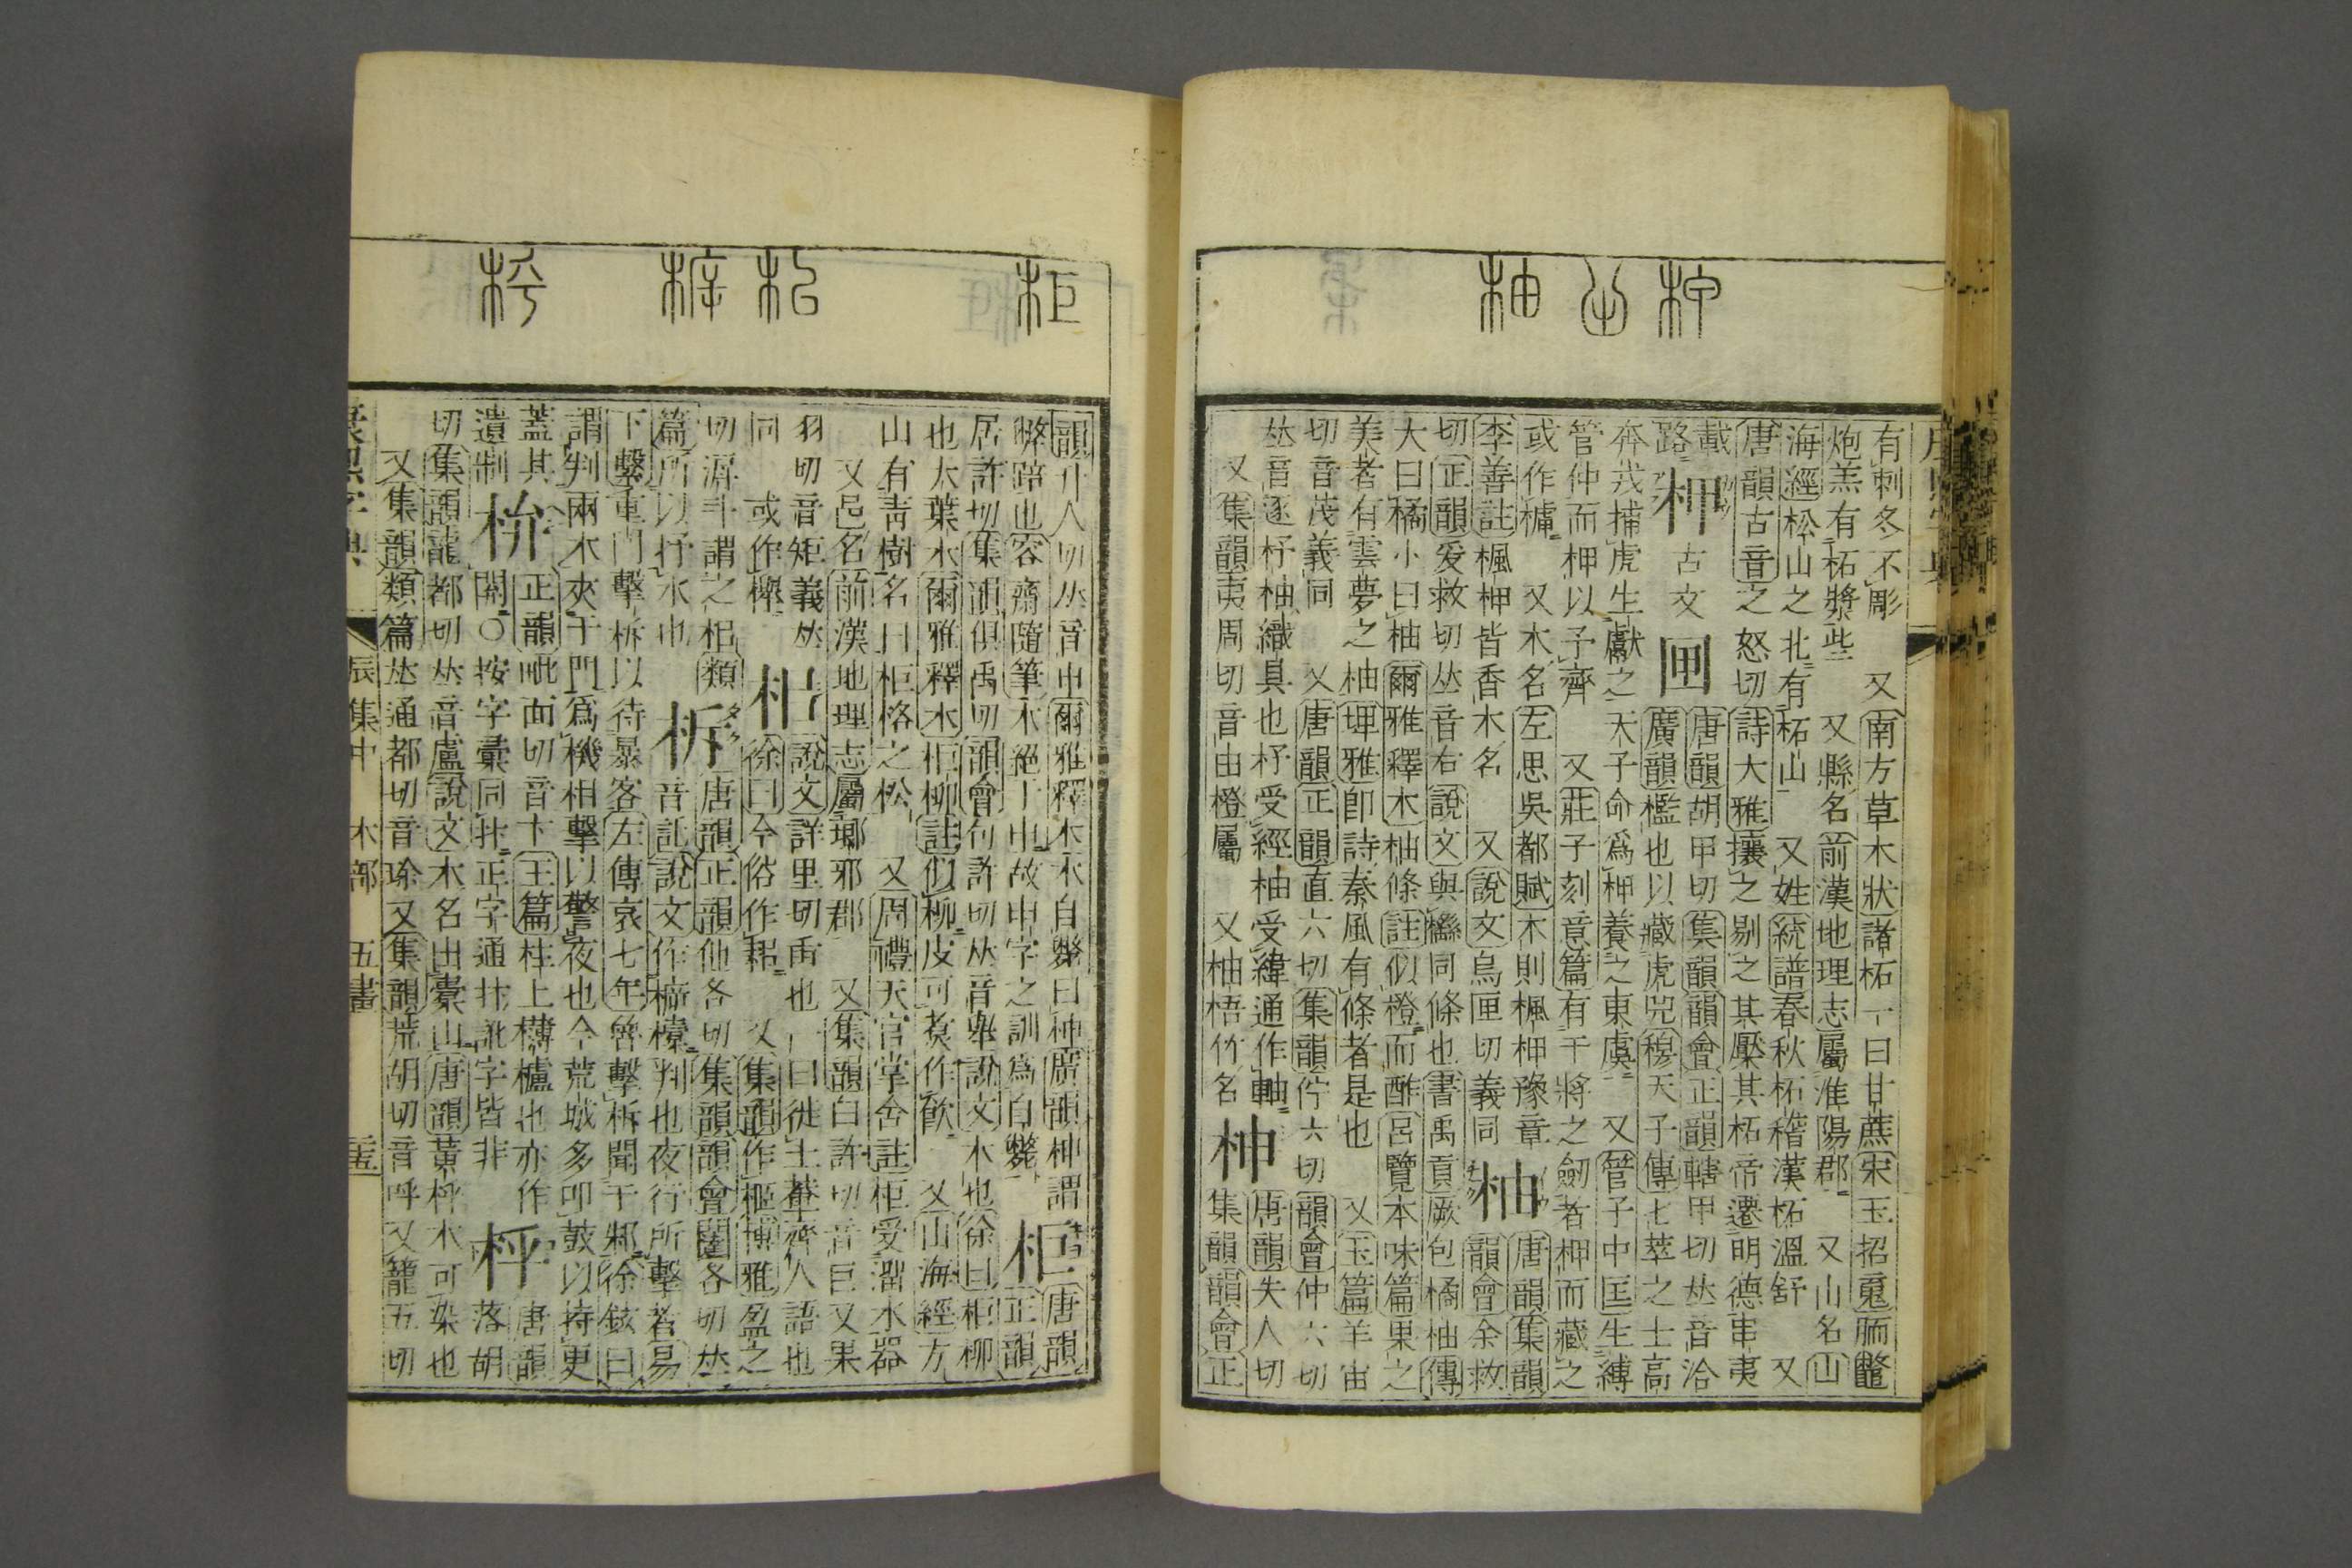 有刺冬不彫　又南方草木狀諸柘一曰甘蔗宋玉招䰟胹鼈
炮羔有柘漿些　又縣名前漢地理志屬淮陽郡　又山名山
海經松山之北有柘山　又姓統譜春秋柘稽漢柘溫舒　又
唐韻古音之怒切詩大雅攘之剔之其檿其柘帝遷明德串夷
載路
柙　古文　㘡　唐韻胡甲切集韻韻會正韻轄甲切𠀤音洽
廣韻檻也以藏虎兕穆天子傳七萃之士高
奔戎捕虎生獻之天子命爲柙養之東虞　又管子中匡生縛
管仲而柙以予齊　又莊子刻意篇有干將之劒者柙而藏之
或作㯉　又木名左思吳都賦木則楓柙豫章
李善註楓柙皆香木名　又說文烏匣切義同
柚　唐韻集韻韻會余救
切正韻爰救切𠀤音右說文與櫾同條也書禹貢厥包橘柚傳
大曰橘小曰柚爾雅釋木柚條註似橙而酢呂覽本味篇果之
美者有雲夢之柚埤雅卽詩秦風有條者是也　又玉篇羊宙
切音茂義同　又唐韻正韻直六切集韻佇六切韻會仲六切
𠀤音逐杼柚織具也杼受經柚受緯通作軸
又集韻夷周切音由橙屬　又柚梧竹名
柛　唐韻失人切集韻韻會正
韻升人切𠀤音申爾雅釋木木自獘曰柛廣韻柛謂
獘踣也容齋隨筆木絕于申故申字之訓爲自獘
柜　唐韻正韻
居許切集韻俱禹切韻會句許切𠀤音舉說文木也徐曰柜柳
也大葉木爾雅釋木柜柳註似柳皮可煑作飮　又山海經方
山有靑樹名曰柜格之松　又周禮天官掌舍註柜受溜水器
又邑名前漢地理志屬瑯邪郡　又集韻臼許切音巨又果
羽切音矩義𠀤同　或作櫸
柖　說文詳里切臿也一曰徙土輂齊人語也
徐曰今俗作耜　又集韻作梩博雅盈之
切㴉斗謂之柖類篇所以抒水也
柝　唐韻正韻他各切集韻韻會闥各切𠀤
音託說文作𣔳㯓判也夜行所擊者易
下繫重門擊柝以待暴客左傳哀七年魯擊柝聞于邾徐鉉曰
謂判兩木夾于門爲機相擊以警夜也今荒城多叩鼓以持更
蓋其遺制
㭓　正韻毗面切音卞玉篇柱上欂櫨也亦作
開○按字彙同㧊正字通㧊訛字皆非
枰　唐韻落胡
切集韻龍都切𠀤音盧說文木名出橐山唐韻黃枰木可染也
又集韻類篇𠀤通都切音瑹又集韻荒胡切音呼又籠五切
康熙字典　辰集中　木部　五畫